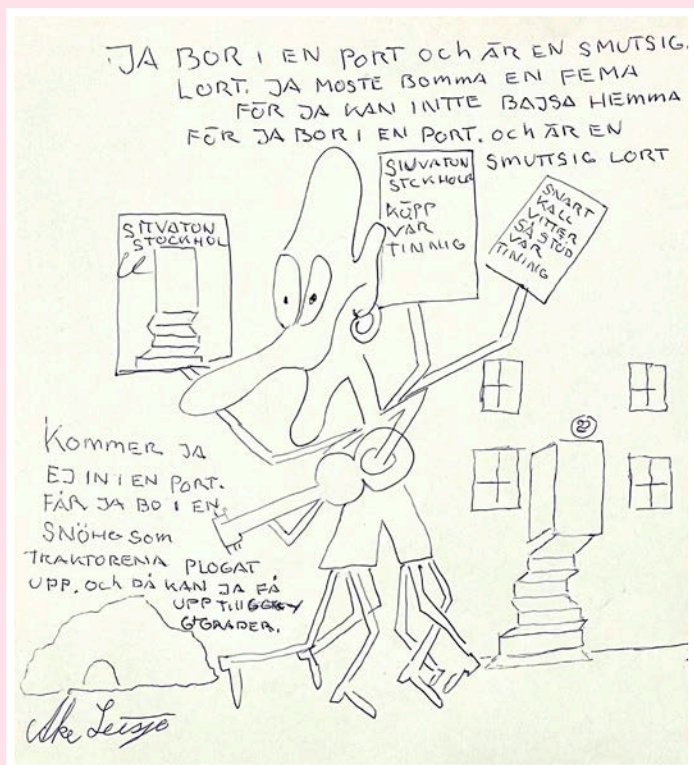 JA BOR I EN PORT OCH ÄR EN SMUTSIG.
LORT. JA MOSTE BOMMA EN FEMA
FÖR JA KAN INITTE BAJSA HEMMA
FÖR JA BOR I EN PORT. OCH ÄR EN
SMUTTSIG LORT
SITVATON
STOCKHOL
SINVATON
STCKHOLM
KÖPP
VAR
TINNIG
SNART
KALL
VITTER
SÅ STÖD
VAR
TINING
KOMMER JA
EJ IN I EN PORT.
FÅR JA BO I EN
SNÖHG SOM
TRAKTORENA PLOGAT
UPP. OCH DÅ KAN JA FÅ
UPP TILL
6+GRADER.
Åke Leisjö